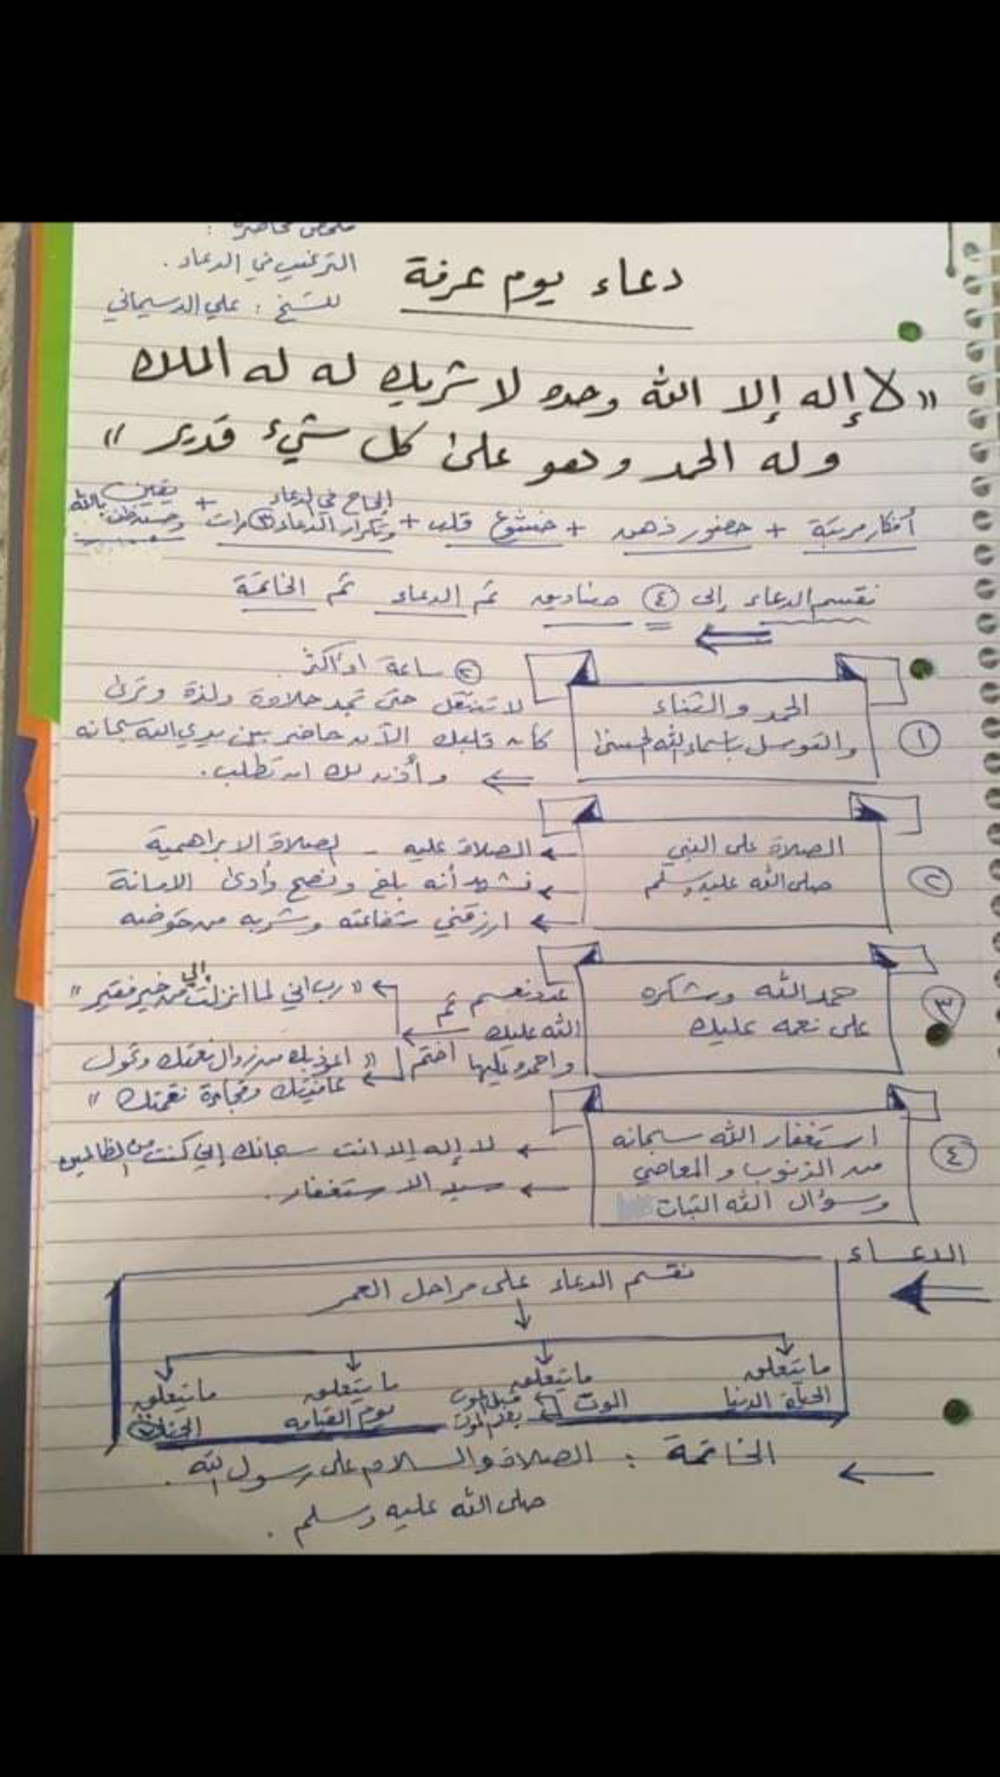 ملخص محاضرة :
الترغيب في الدعاء .
للشيخ : علي الدسيماني
دعاء يوم عرفة
« لا إله إلا الله وحده لا شريك له له الملك
وله الحمد وهو على كل شيء قدير »
أفكار مرتبة + حضور ذهن + خشوع قلب + إلحاح في الدعاء وتكرار الدعاء ٣ مرات + يقين وحسن ظن بالله
نقسم الدعاء إلى ٤ صناديق ثم الدعاء ثم الخاتمة
١
الحمد والثناء
والتوسل بأسماء الله الحسنى
ساعة او أكثر
لا تنتقل حتى تجد حلاوة ولذة وترى
كأن قلبك الآن حاضر بين يدي الله سبحانه
وأذن لك ان تطلب .
٢
الصلاة على النبي
صلى الله عليه وسلم
الصلاة عليه - الصلاة الابراهمية
نشهد أنه بلغ ونصح وأدى الامانة
ارزقني شفاعته وشربه من حوضه
٣
حمد الله وشكره
على نعمه عليك
عدد نعم
الله عليك
واحمده عليها
ثم
اختم
« رب اني لما انزلت إلي من خير فقير »
« اعوذ بك من زوال نعمتك وتحول
عافيتك وفجاءة نقمتك »
٤
استغفار الله سبحانه
من الذنوب و المعاصي
وسؤال الله الثبات
لا إله إلا انت سبحانك إني كنت من الظالمين
سيد الاستغفار .
الدعاء
نقسم الدعاء على مراحل العمر
ما يتعلق
الحياة الدنيا
ما يتعلق
الموت
قبل الموت
بعد الموت
ما يتعلق
يوم القيامه
ما يتعلق
الجنة
الخاتمة : الصلاة والسلام على رسول الله
صلى الله عليه وسلم .